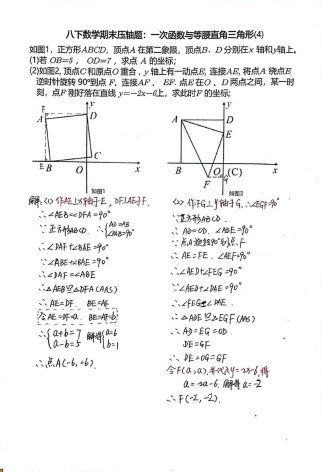 八下数学期末压轴题：一次函数与等腰直角三角形(4)
如图1，正方形ABCD，顶点A在第二象限，顶点B、D分别在x轴和y轴上。
(1)若OB=5， OD=7，求点A的坐标；
(2)如图2，顶点C和原点O重合，y轴上有一动点E，连接AE，将点A绕点E
逆时针旋转90°到点F，连接AF、EF．点E在O、D两点之间，某一时
刻，点F刚好落在直线 y=-2x-6上，求此时F的坐标；
y
F
A
D
C
E
B
O
x
如图1
y
A
D
E
B
O(C)
x
F
G
如图2
解：(1)作AE⊥x轴于E，DF⊥AE于F．
∴∠AEB=∠DFA=90°
∵正方形ABCD ∴{AD=AB ∠DAB=90°
∴∠DAF+∠BAE=90°
∵∠ABE+∠BAE=90°
∴∠DAF=∠ABE
∴△AEB≌△DFA(AAS)
∴AE=DF． BE=AF
令AE=DF=a． BE=AF=b
∴{a+b=7 a-b=5 解得{a=6 b=1
∴点A(-6,+6)．
(2)．作FG⊥y轴于G，∴∠EGF=90°
∵正方形ABCD．
∴AD=OD．∠ADE=90°
∵点A旋转90°到点F
∴AE=FE．∠AEF=90°
∴∠AED+∠FEG=90°
∵∠AED+∠DAE=90°
∴∠FEG=∠DAE
∴△ADE≌△EGF(AAS)
∴AD=EG=OD
DE=GF
∴DE=OG=GF
令F(a,a)，代入y=-2x-6，得
a=-2a-6．解得a=-2
∴F(-2,-2)．